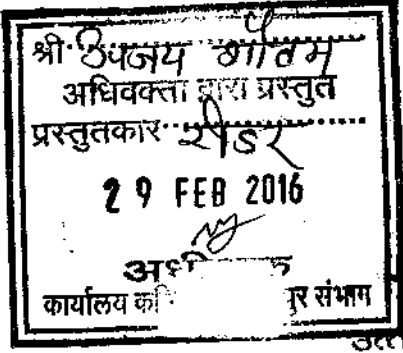 श्री विजय गौतम
अधिवक्ता द्वारा प्रस्तुत
प्रस्तुतकार रीडर
29 FEB 2016
कार्यालय
संभाग